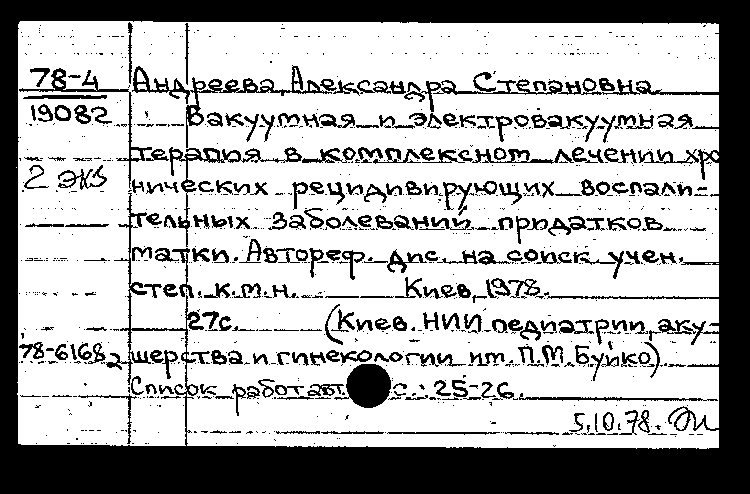 78-4 Андреева, Александра Степановна
19082 Вакуумная и электровакуумная
терапия в комплексном лечении хро
2 экз нических рецидивирующих воспали-
тельных заболеваний придатков
матки. Автореф. дис. на соиск учен.
степ. к.м.н. Киев, 1978.
27с. (Киев. НИИ педиатрии, аку-
78-61682 шерства и гинекологии им. П.М. Буйко)
Список работ авт. с.: 25-26.
5.10.78.